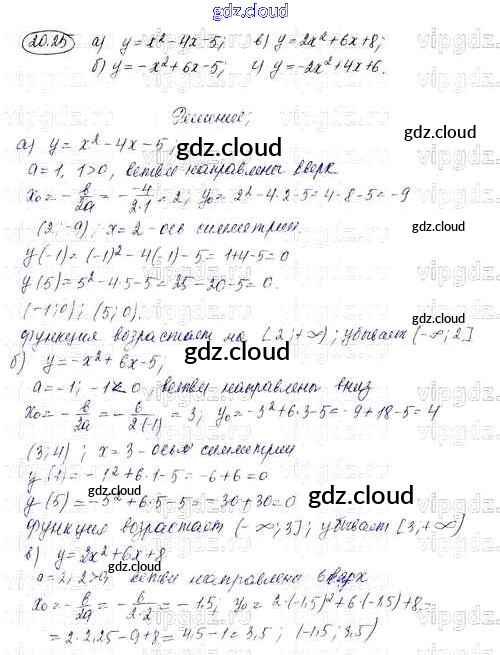 gdz.cloud
20.25 а) y = x² - 4x - 5; в) y = 2x² + 6x + 8;
б) y = -x² + 6x - 5; г) y = -2x² + 4x + 6.
Решение;
а) y = x² - 4x - 5;
a = 1, 1 > 0, ветви направлены вверх
x₀ = - в/2a = - -4/2·1 = 2; y₀ = 2² - 4·2 - 5 = 4 - 8 - 5 = -9
(2; -9); x = 2 - ось симметрии.
y(-1) = (-1)² - 4(-1) - 5 = 1 + 4 - 5 = 0
y(5) = 5² - 4·5 - 5 = 25 - 20 - 5 = 0.
(-1; 0); (5; 0).
функция возрастает на [2; +∞); убывает (-∞; 2]
б) y = -x² + 6x - 5;
a = -1; -1 < 0 ветви направлены вниз
x₀ = - в/2a = - 6/2(-1) = 3; y₀ = -3² + 6·3 - 5 = -9 + 18 - 5 = 4
(3; 4); x = 3 - осья симметрии
y(1) = -1² + 6·1 - 5 = -6 + 6 = 0
y(5) = -5² + 6·5 - 5 = -30 + 30 = 0
функция возрастает (-∞; 3]; убывает [3; +∞)
в) y = 2x² + 6x + 8
a = 2; 2 > 0, ветви направлена вверх
x₀ = - в/2a = - 6/2·2 = -1,5; y₀ = 2·(-1,5)² + 6·(-1,5) + 8 =
= 2·2,25 - 9 + 8 = 4,5 - 1 = 3,5; (-1,5; 3,5)